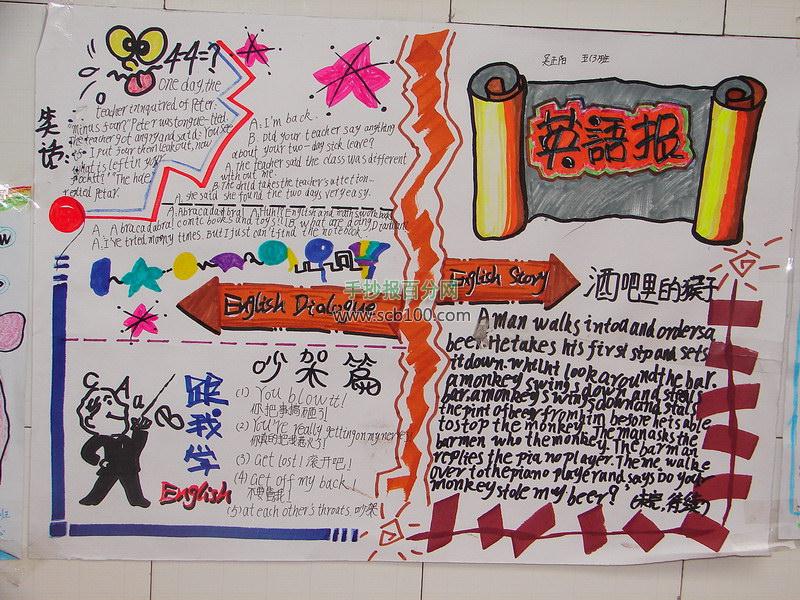 英語报
4-4=?
笑话:
One day, the
teacher inngatred of Peter.
"minus four?" Peter was tongue-tied.
The teacher got angry and said: You see
I put four then leakout, now
what is left in your
pocket?" "The hole"
replied Petar.
A: I'm back.
B. Did your teacher say anything
about your two-day sick leave?
A. The teacher said the class was different
with out me.
A. she said she found the two days very easy.
A. Abracadabra
comic books and toys!!
A. I've tried money times. But I just can't find the notebook.
English Dialogue
English Story
手抄报百分网
www.scb100.com
吵架篇
跟我学
English
(1) You blow it!
你把事搞砸了!
(2) You're really getting on my nerves!
(3) Get lost! 滚开吧!
(4) Get off my back!
(5) at each other's throats 吵架
酒吧里的猴子
A man walks into a and orders a
beer. He takes his first stp and sets
it down. whilht look around the bar.
a monkey swings down and steals
bar. a monkey swings down and stals
the pint of beer from him before he is able
to stop the monkey. The man asks the
barmen who the monkey. The barman
replies the piano player. The me walke
over to the piano player and says Do your
monkey stole my beer? (未完,待续)